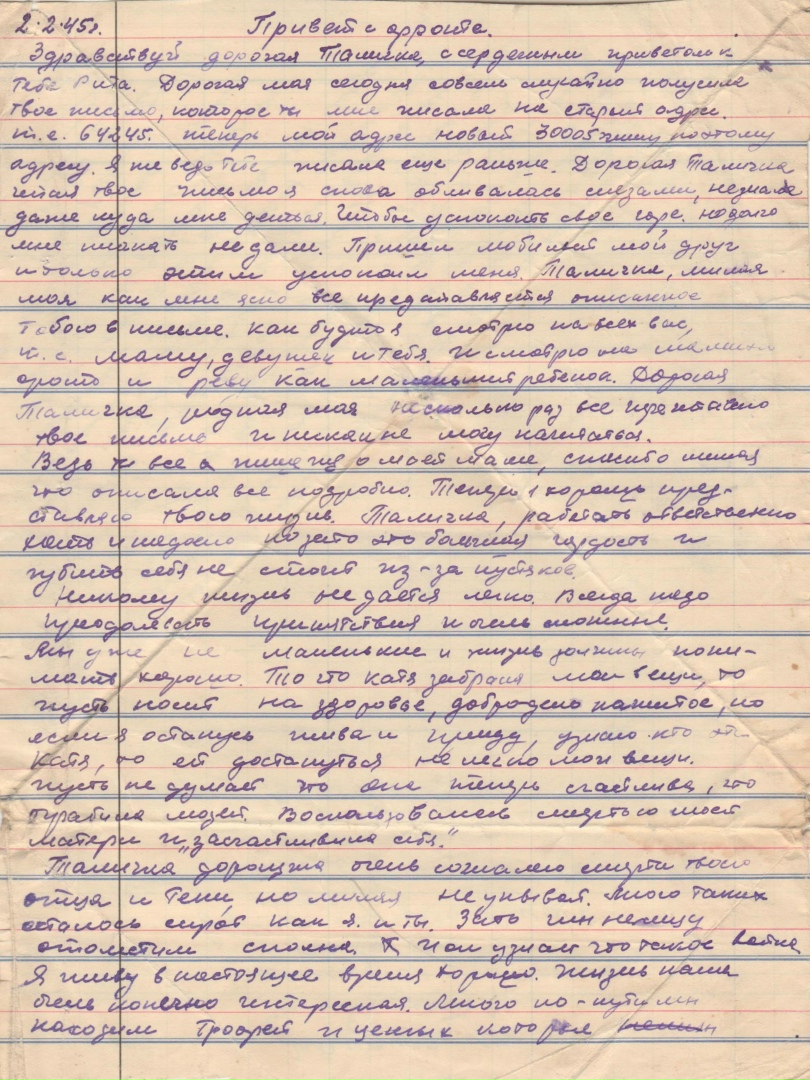 2.2.45г. Привет с фронта.
Здравствуй дорогая Таличка, с сердечным приветом к
тебе Рита. Дорогая моя сегодня совсем случайно получила
твое письмо, которое ты мне писала на старый адрес.
т.е. 64245. теперь мой адрес новый 30005 пиши поэтому
адресу. Я же ведь тебе писала еще раньше. Дорогая Таличка
читая твое письмо я снова обливалась слезами, незнала
даже куда мне деться. Чтобы успокоить свое горе. Но долго
мне плакать не дали. Пришел любимый мой друг
и только этим успокоил меня. Таличка, милая
моя как мне ясно все представляется описанное
тобою в письме. Как будто я смотрю на всех вас,
т.е. машу, девушек и тебя. И смотрю на мамино
фото и реву как маленький ребенок. Дорогая
Таличка, родная моя несколько раз все прочитано
твое письмо и никак не могу начитаться.
Ведь ты все пишешь о моей маме, спасибо милая
что описала все подробно. Теперь я хорошо пред-
ставляю твою жизнь. Таличка, работать ответственно
хоть и надоело но зато это большая гордость и
губить себя не стоит из-за пустяков.
Никому жизнь не дается легко. Всегда надо
преодолевать припятствия и очень сложные.
Мы уже не маленькие и жизнь должны пони-
мать хорошо. То что Катя забрала мои вещи, то
пусть носит на здоровье, добро дело нажитое, но
если я останусь жива и приеду, узнаю кто эта
Катя, то ей достануться не легко мои вещи.
Пусть не думает что она теперь счастлива, что
грабила людей. Воспользовалась смертью моей
матери и „засчастливила себя."
Таличка дорогуша очень сожалею смерти твоего
отца и Тени, но милая не унывай. Много таких
осталось сирот как я и ты. Зато мы немцу
отомстим сполна. И он узнает что такое война
Я живу в настоящее время хорошо. Жизнь наша
очень конечно интересная. Много по-пути мы
находим трофей и ценных которые